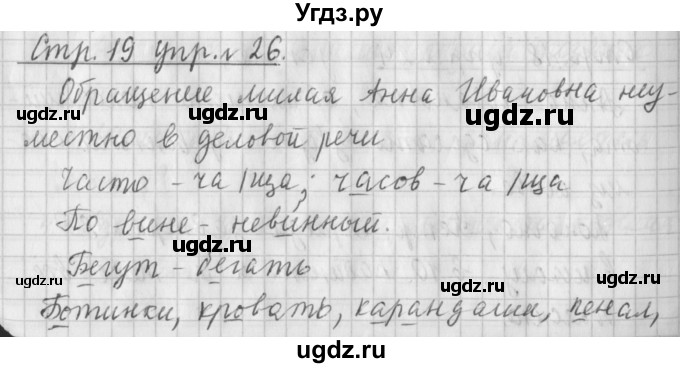 Угдз.ру
Стр. 19 упр. № 26.
Обращение милая Анна Ивановна неу-
местно в деловой речи
Часто - ча/ща; часов - ча/ща
По вине - невинный.
Бегут - бегать
Ботинки, кровать, карандаши, пенал,
gdz.ru
gdz.ru
gdz.ru
gdz.ru
gdz.ru
gdz.ru
gdz.ru
gdz.ru
Угдз.ру